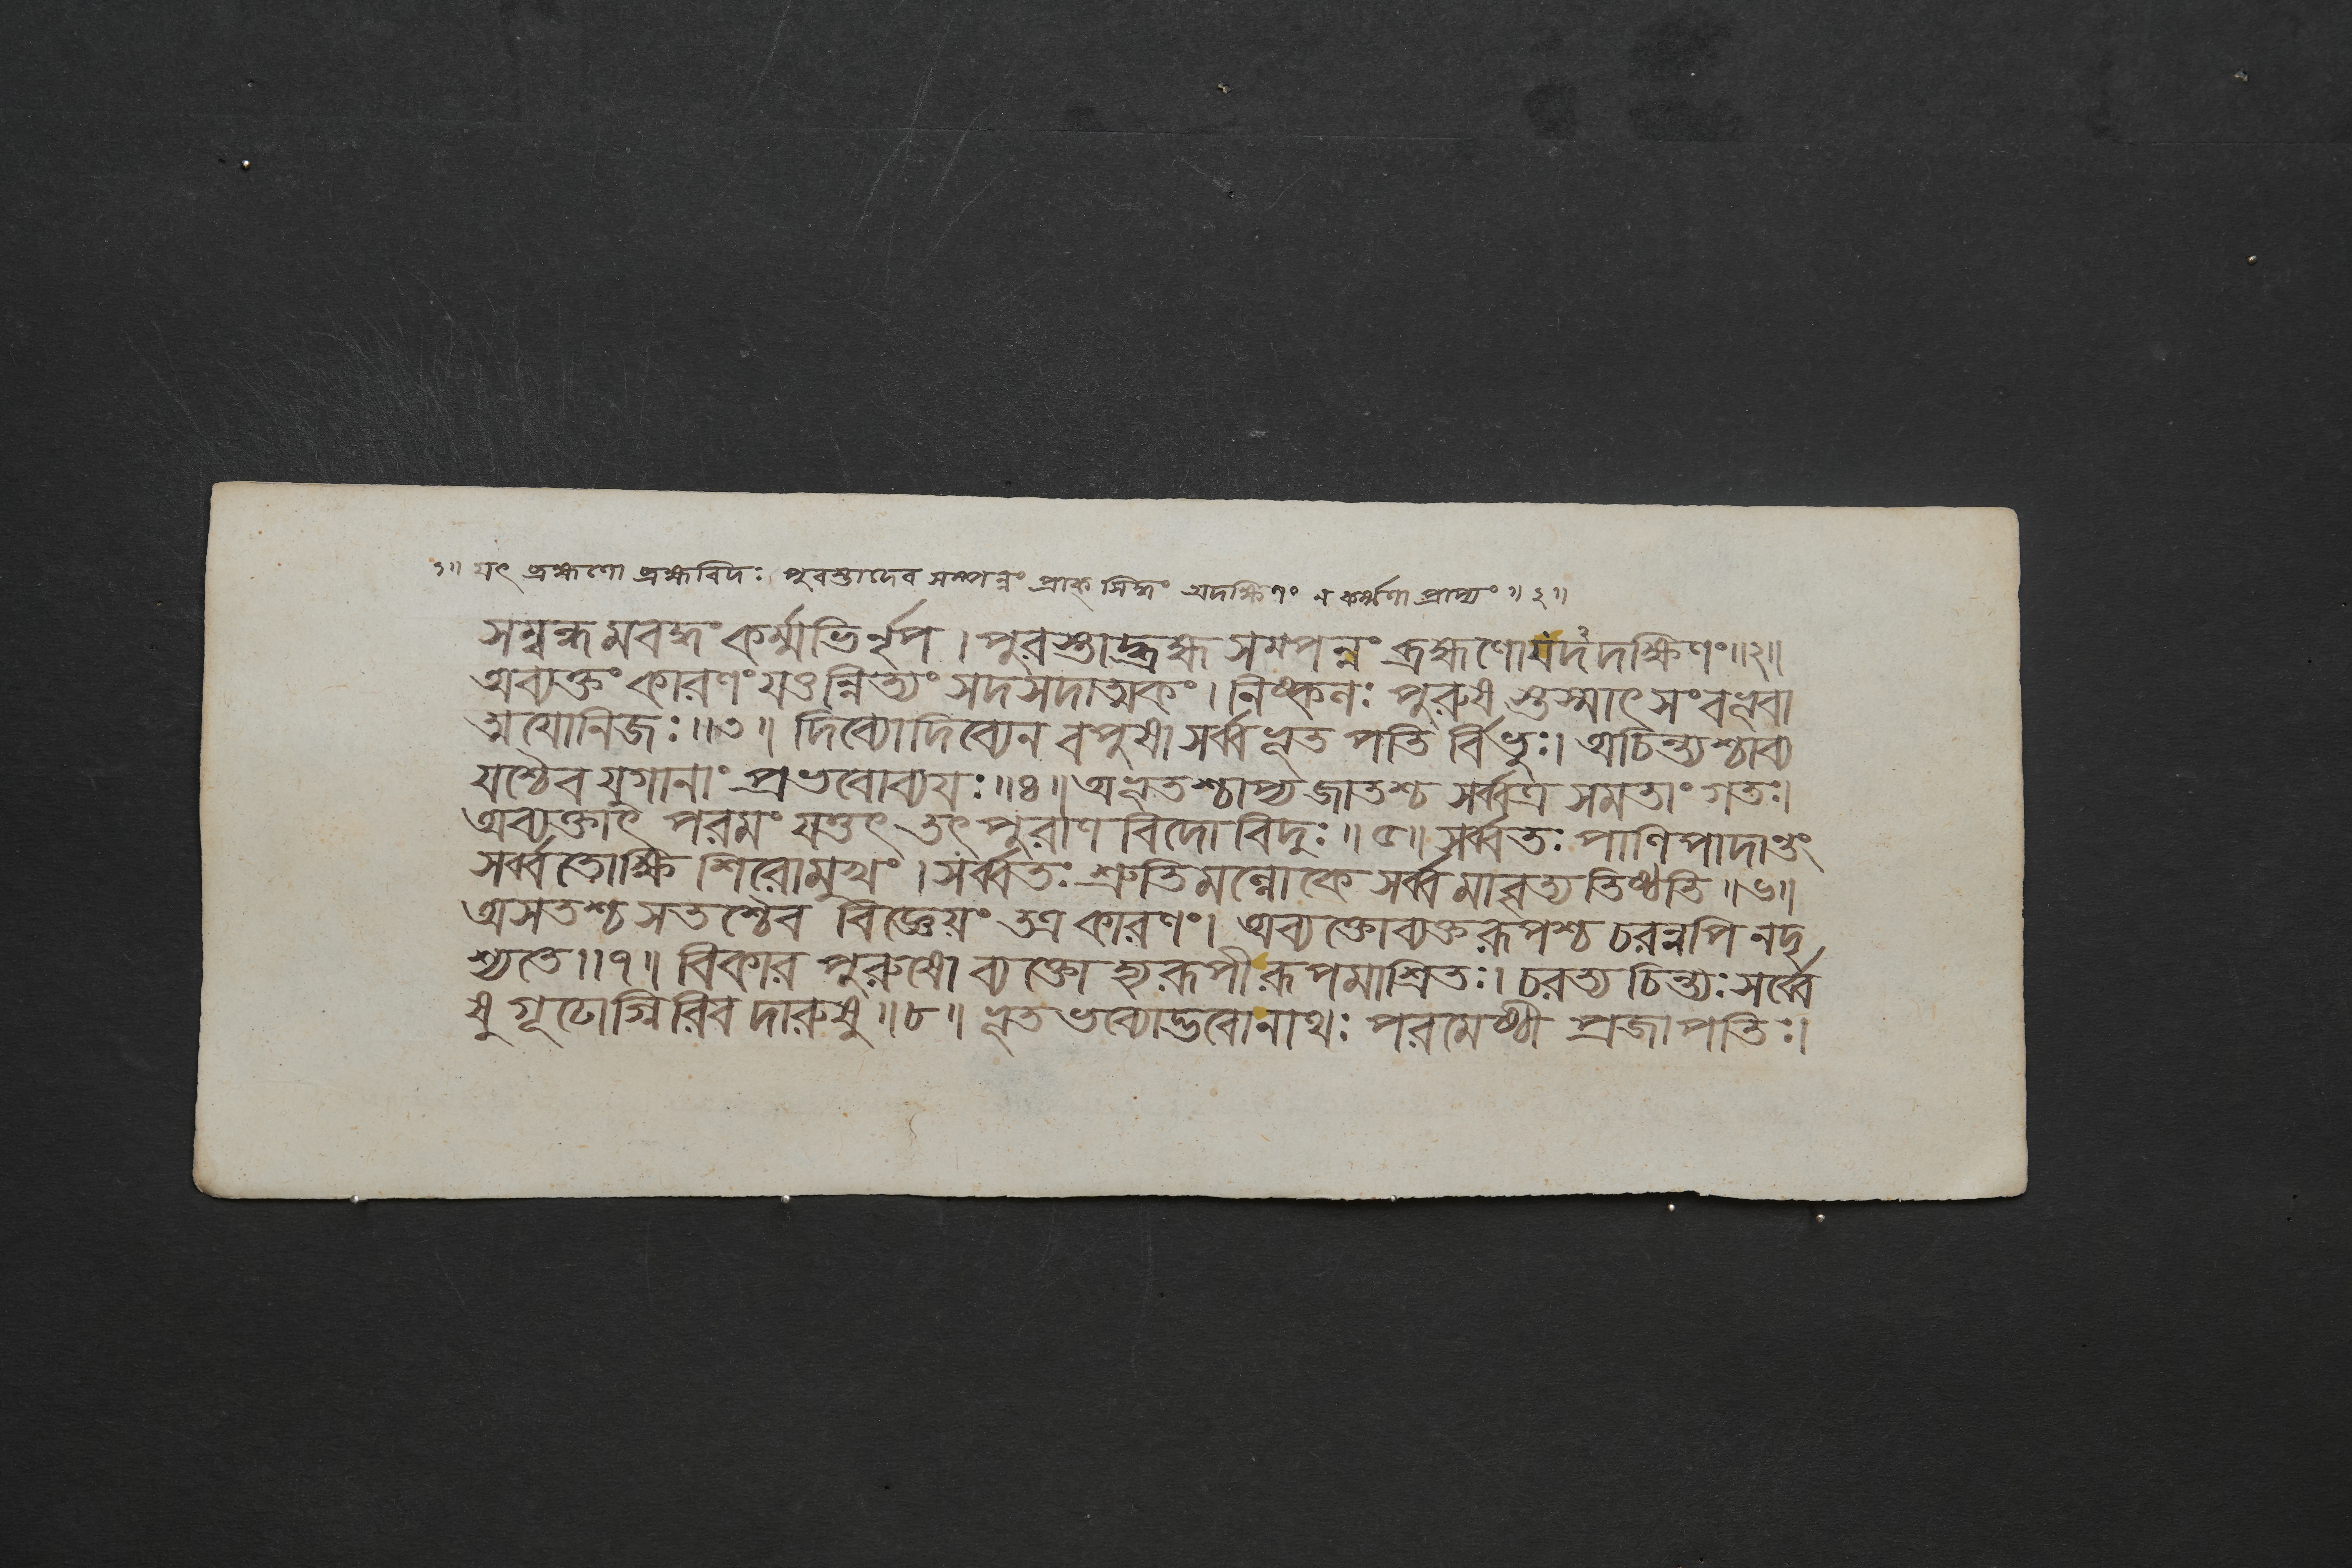 ১॥ যৎ ব্রহ্মণো ব্রহ্মবিদঃ পুরস্তাদেব সম্পন্নং প্রাক্ সিদ্ধং অদক্ষিণং ন কর্ম্মণা প্রাপ্যং ॥ ২॥
সম্বন্ধমবদ্ধং কর্ম্মভির্নৃপ । পুরস্তাদ্ব্রহ্ম সম্পন্নং ব্রহ্মণো যদদক্ষিণং॥২॥
অব্যক্তং কারণং যত্তন্নিত্যং সদসদাত্মকং । নিষ্কলঃ পুরুষ স্তস্মাৎ সংবভূবা
ত্মযোনিজঃ ॥৩॥ দিব্যোদিব্যেন বপুষা সর্ব্বভূত পতি র্বিভুঃ। অচিন্ত্যশ্চাব্য
যশ্চৈব যুগানাং প্রভবোব্যয়ঃ ॥৪॥ অভূতশ্চাপ্য জাতশ্চ সর্ব্বত্র সমতাং গতঃ।
অব্যক্তাৎ পরমং যত্তৎ তৎ পুরাণ বিদো বিদুঃ ॥৫॥ সর্ব্বতঃ পাণিপাদান্তং
সর্ব্বতোক্ষি শিরোমুখং । সর্ব্বতঃ শ্রুতিমল্লোকে সর্ব্বমাবৃত্য তিষ্ঠতি ॥৬॥
অসতশ্চ সতশ্চৈব বিজ্ঞেয়ং তত্র কারণং। অব্যক্তোব্যক্তরূপশ্চ চরন্নপি নদৃ
শ্যতে ॥৭॥ বিকার পুরুষো ব্যক্তো হ্যরূপী রূপমাশ্রিতঃ। চরত্য চিন্ত্যঃ সর্ব্বে
ষু গূঢোগ্নিরিব দারুষু ॥৮॥ ভূত ভব্যোদ্ভবোনাথঃ পরমেষ্ঠী প্রজাপতিঃ।